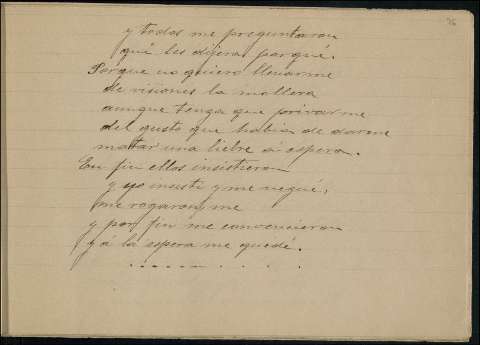 76
y todos me preguntaron
qué les dijera porqué.
Porque no quiero llenarme
de visiones la mollera
aunque tenga que privarme
del gusto que habia de darme
matar una liebre á espera.
En fin ellos insistieron
y yo insistí y me negué,
me rogaron, me
y por fin me convencieron
y á la espera me quedé.
. . . . . . . . . .